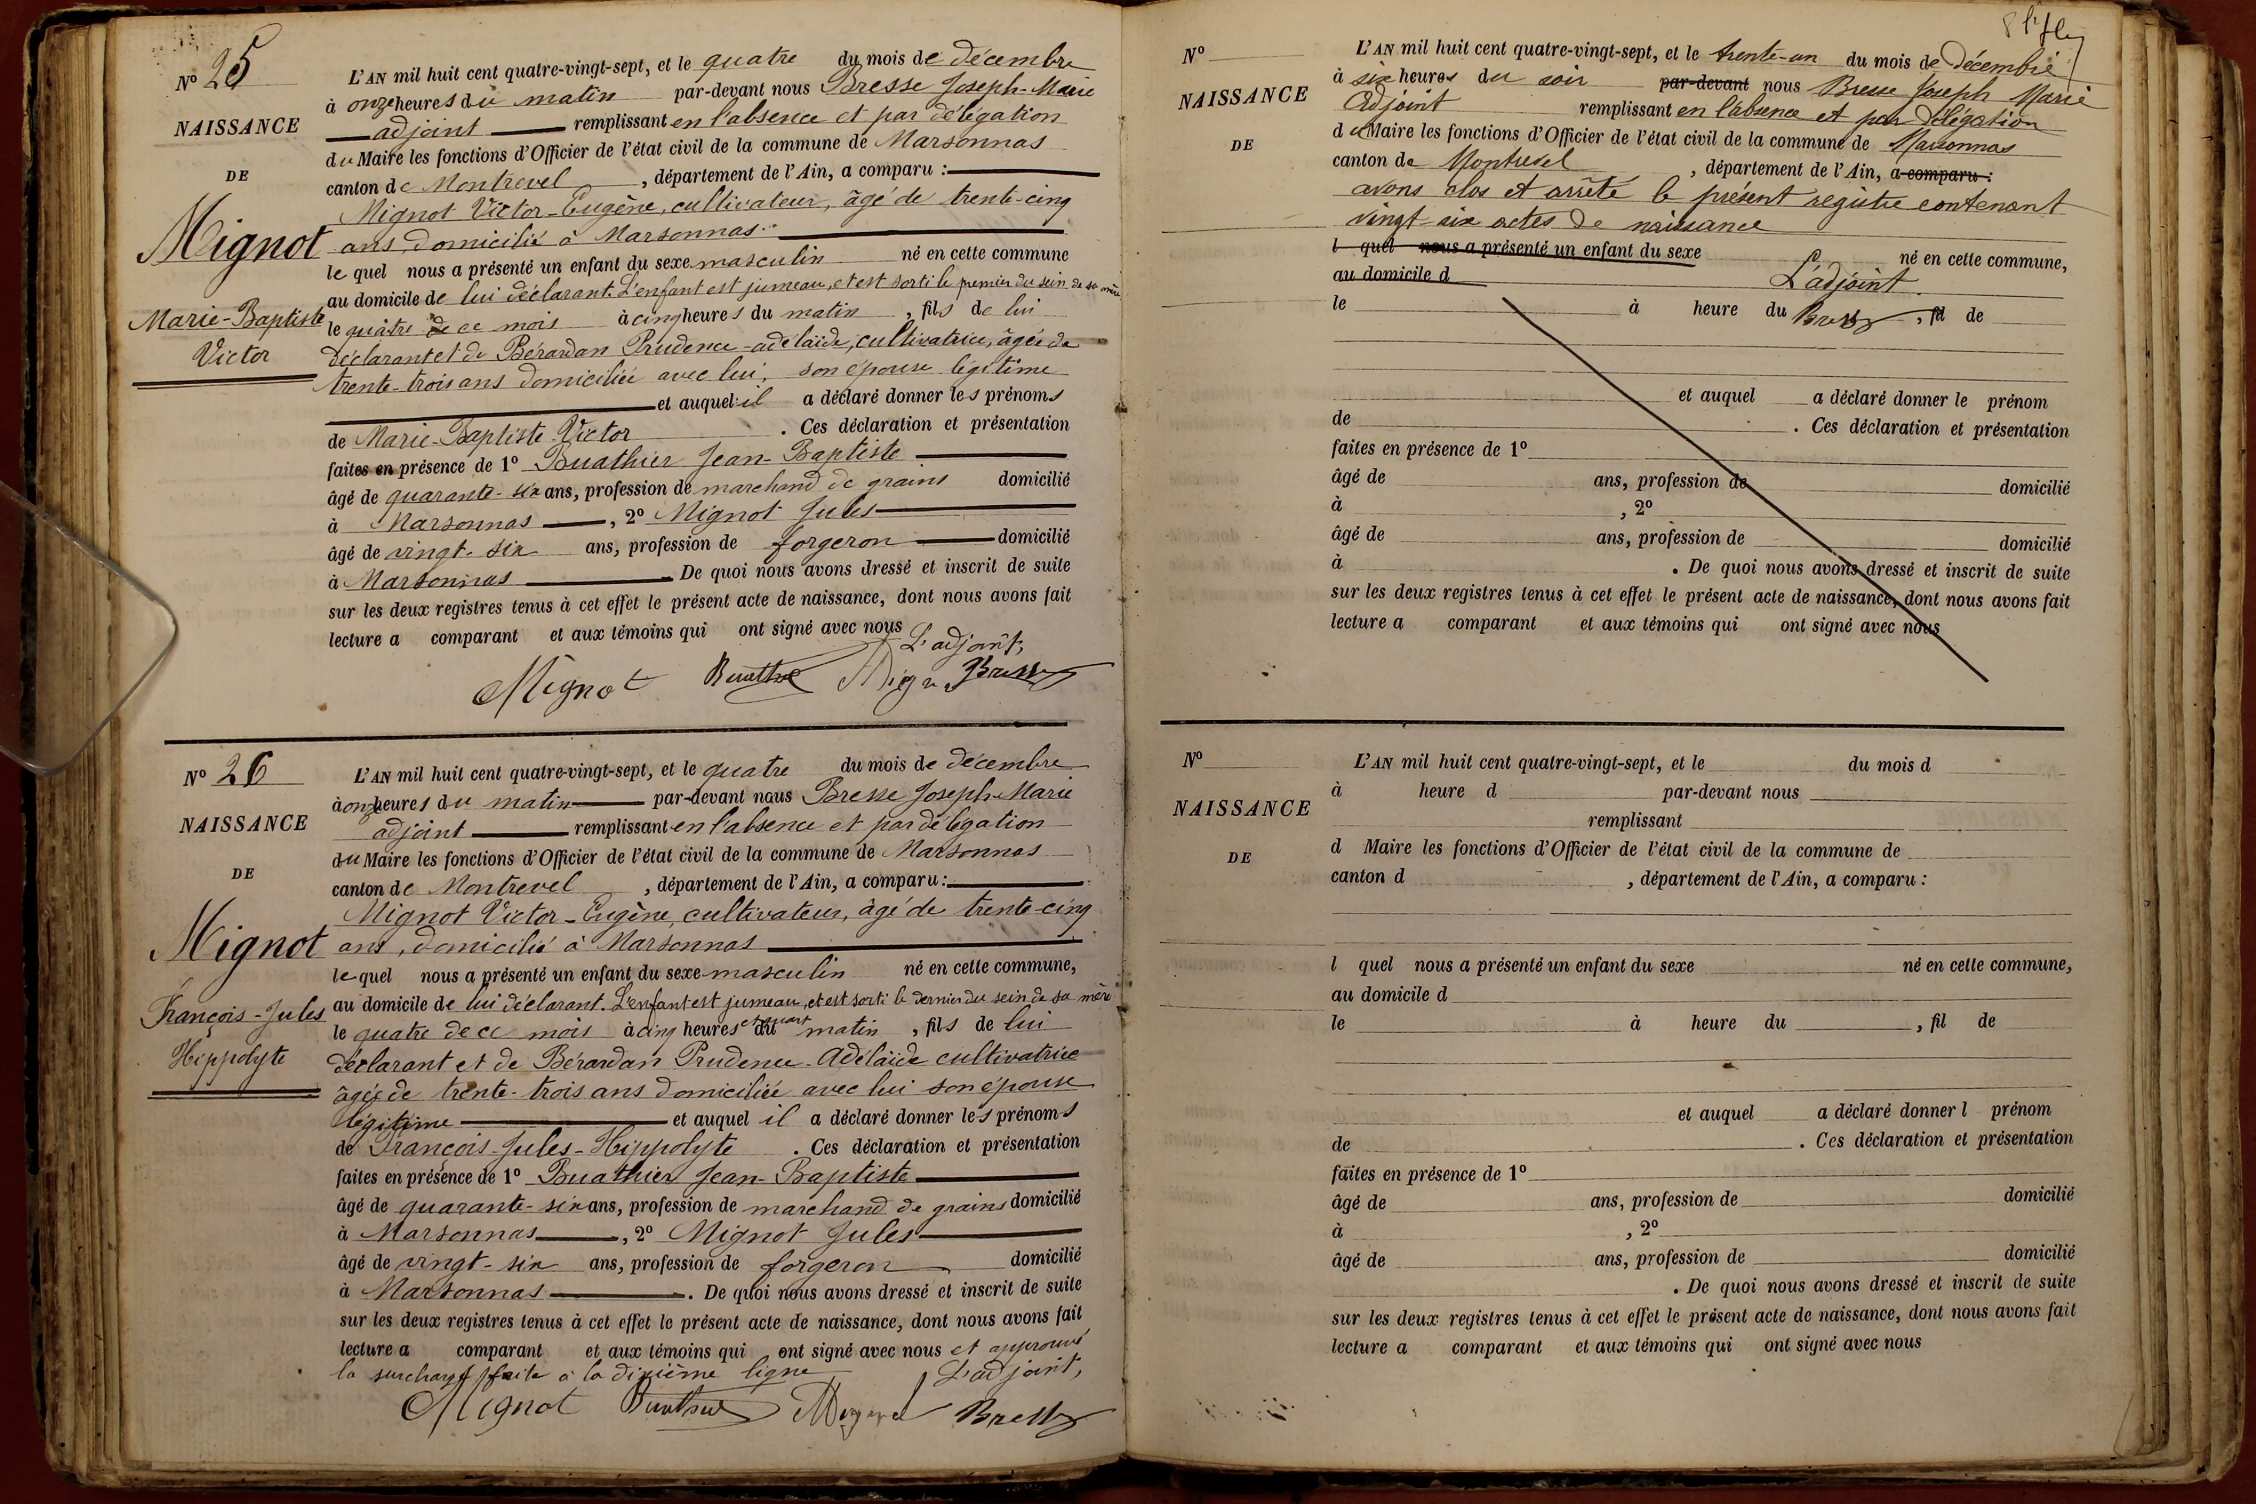 Nº 25
NAISSANCE
DE
Mignot
Marie-Baptiste
Victor
L'AN mil huit cent quatre-vingt-sept, et le quatre du mois de décembre
à onze heures du matin par-devant nous Bresse Joseph-Marie
adjoint remplissant en l'absence et par délégation
du Maire les fonctions d'Officier de l'état civil de la commune de Marsonnas
canton de Montrevel, département de l'Ain, a comparu :
Mignot Victor-Eugène, cultivateur, âgé de trente-cinq
ans, domicilié à Marsonnas.
lequel nous a présenté un enfant du sexe masculin né en cette commune
au domicile de lui déclarant. L'enfant est jumeau, et est sorti le premier du sein de sa mère
le quatre de ce mois à cinq heures du matin, fils de lui
déclarant et de Bérardan Prudence-adélaïde, cultivatrice, âgée de
trente-trois ans domiciliée avec lui, son épouse légitime
et auquel il a déclaré donner les prénoms
de Marie-Baptiste-Victor. Ces déclaration et présentation
faites en présence de 1º Buathier Jean-Baptiste
âgé de quarante-six ans, profession de marchand de grains domicilié
à Marsonnas, 2º Mignot Jules
âgé de vingt-six ans, profession de forgeron domicilié
à Marsonnas. De quoi nous avons dressé et inscrit de suite
sur les deux registres tenus à cet effet le présent acte de naissance, dont nous avons fait
lecture a comparant et aux témoins qui ont signé avec nous
L'adjoint,
Mignot Buathier Mignot Bresse
Nº 26
NAISSANCE
DE
Mignot
François-Jules
Hippolyte
L'AN mil huit cent quatre-vingt-sept, et le quatre du mois de décembre
à onze heures du matin par-devant nous Bresse Joseph-Marie
adjoint remplissant en l'absence et par délégation
du Maire les fonctions d'Officier de l'état civil de la commune de Marsonnas
canton de Montrevel, département de l'Ain, a comparu :
Mignot Victor-Eugène, cultivateur, âgé de trente-cinq
ans, domicilié à Marsonnas
lequel nous a présenté un enfant du sexe masculin né en cette commune,
au domicile de lui déclarant. L'enfant est jumeau, et est sorti le dernier du sein de sa mère
le quatre de ce mois à cinq heures et quart du matin, fils de lui
déclarant et de Bérardan Prudence-Adélaïde cultivatrice
âgée de trente-trois ans domiciliée avec lui son épouse
légitime et auquel il a déclaré donner les prénoms
de François-Jules-Hippolyte. Ces déclaration et présentation
faites en présence de 1º Buathier Jean-Baptiste
âgé de quarante-six ans, profession de marchand de grains domicilié
à Marsonnas, 2º Mignot Jules
âgé de vingt-six ans, profession de forgeron domicilié
à Marsonnas. De quoi nous avons dressé et inscrit de suite
sur les deux registres tenus à cet effet le présent acte de naissance, dont nous avons fait
lecture a comparant et aux témoins qui ont signé avec nous et approuvé
la surcharge faite à la dixième ligne L'adjoint,
Mignot Buathier Mignot Bresse
Nº
NAISSANCE
DE
L'AN mil huit cent quatre-vingt-sept, et le trente-un du mois de décembre
à six heures du soir par-devant nous Bresse Joseph Marie
Adjoint remplissant en l'absence et par délégation
du Maire les fonctions d'Officier de l'état civil de la commune de Marsonnas
canton de Montrevel, département de l'Ain, a comparu :
avons clos et arrêté le présent registre contenant
vingt-six actes de naissance
l quel nous a présenté un enfant du sexe né en cette commune,
au domicile d L'adjoint
le à heure du Bresse, fil de
et auquel a déclaré donner le prénom
de . Ces déclaration et présentation
faites en présence de 1º
âgé de ans, profession de domicilié
à , 2º
âgé de ans, profession de domicilié
à . De quoi nous avons dressé et inscrit de suite
sur les deux registres tenus à cet effet le présent acte de naissance, dont nous avons fait
lecture a comparant et aux témoins qui ont signé avec nous
Nº
NAISSANCE
DE
L'AN mil huit cent quatre-vingt-sept, et le du mois d
à heure d par-devant nous
remplissant
d Maire les fonctions d'Officier de l'état civil de la commune de
canton d , département de l'Ain, a comparu :
l quel nous a présenté un enfant du sexe né en cette commune,
au domicile d
le à heure du , fil de
et auquel a déclaré donner l prénom
de . Ces déclaration et présentation
faites en présence de 1º
âgé de ans, profession de domicilié
à , 2º
âgé de ans, profession de domicilié
. De quoi nous avons dressé et inscrit de suite
sur les deux registres tenus à cet effet le présent acte de naissance, dont nous avons fait
lecture a comparant et aux témoins qui ont signé avec nous